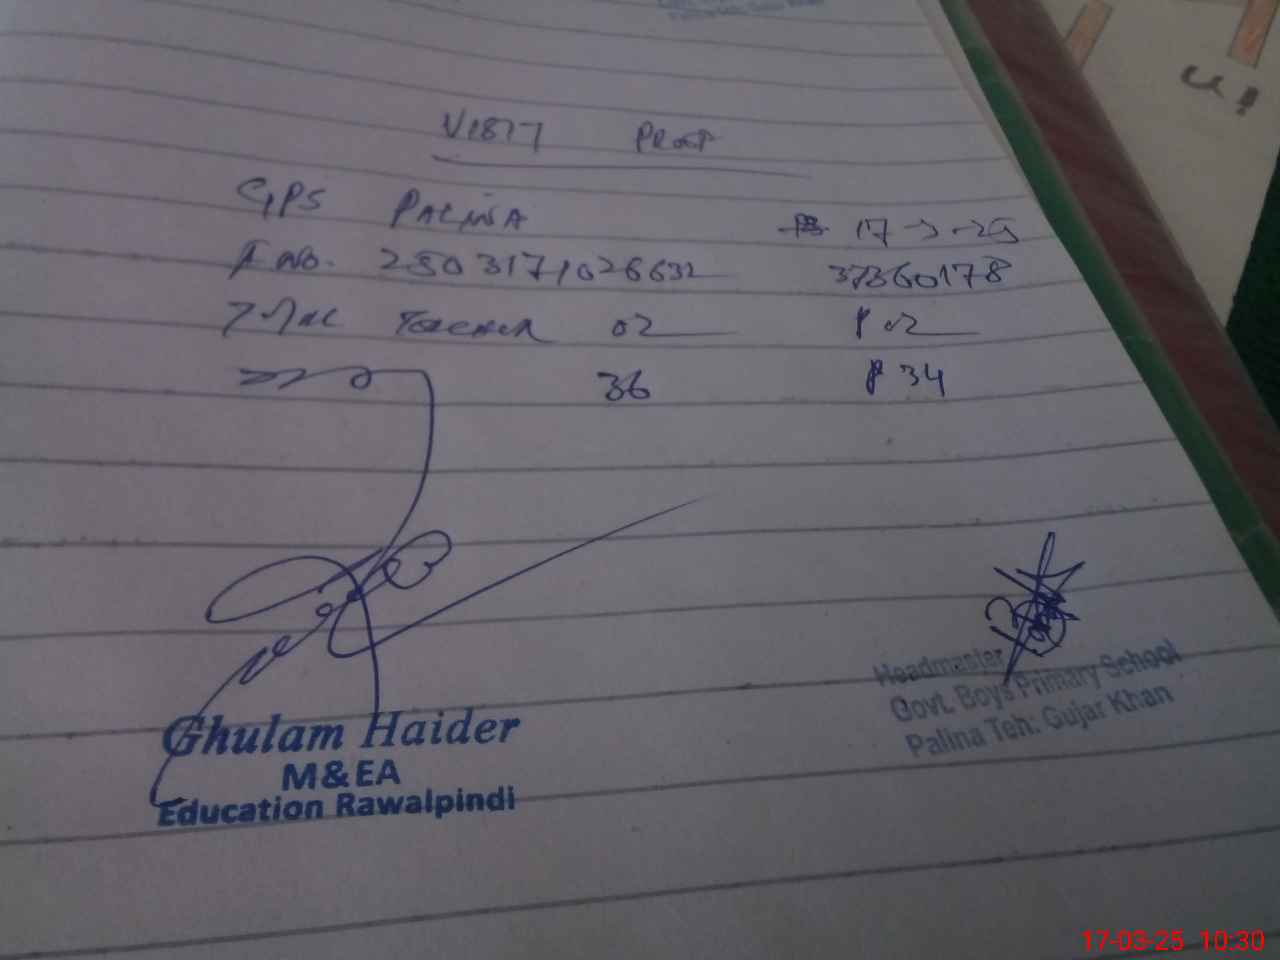 VISIT PROOF
GPS PALINA 17-3-25
F NO. 2503171026632 37360178
Total Teacher 02 P 02
36 P 34
Headmaster
Govt. Boys Primary School
Palina Teh: Gujar Khan
Ghulam Haider
M&EA
Education Rawalpindi
17-03-25 10:30